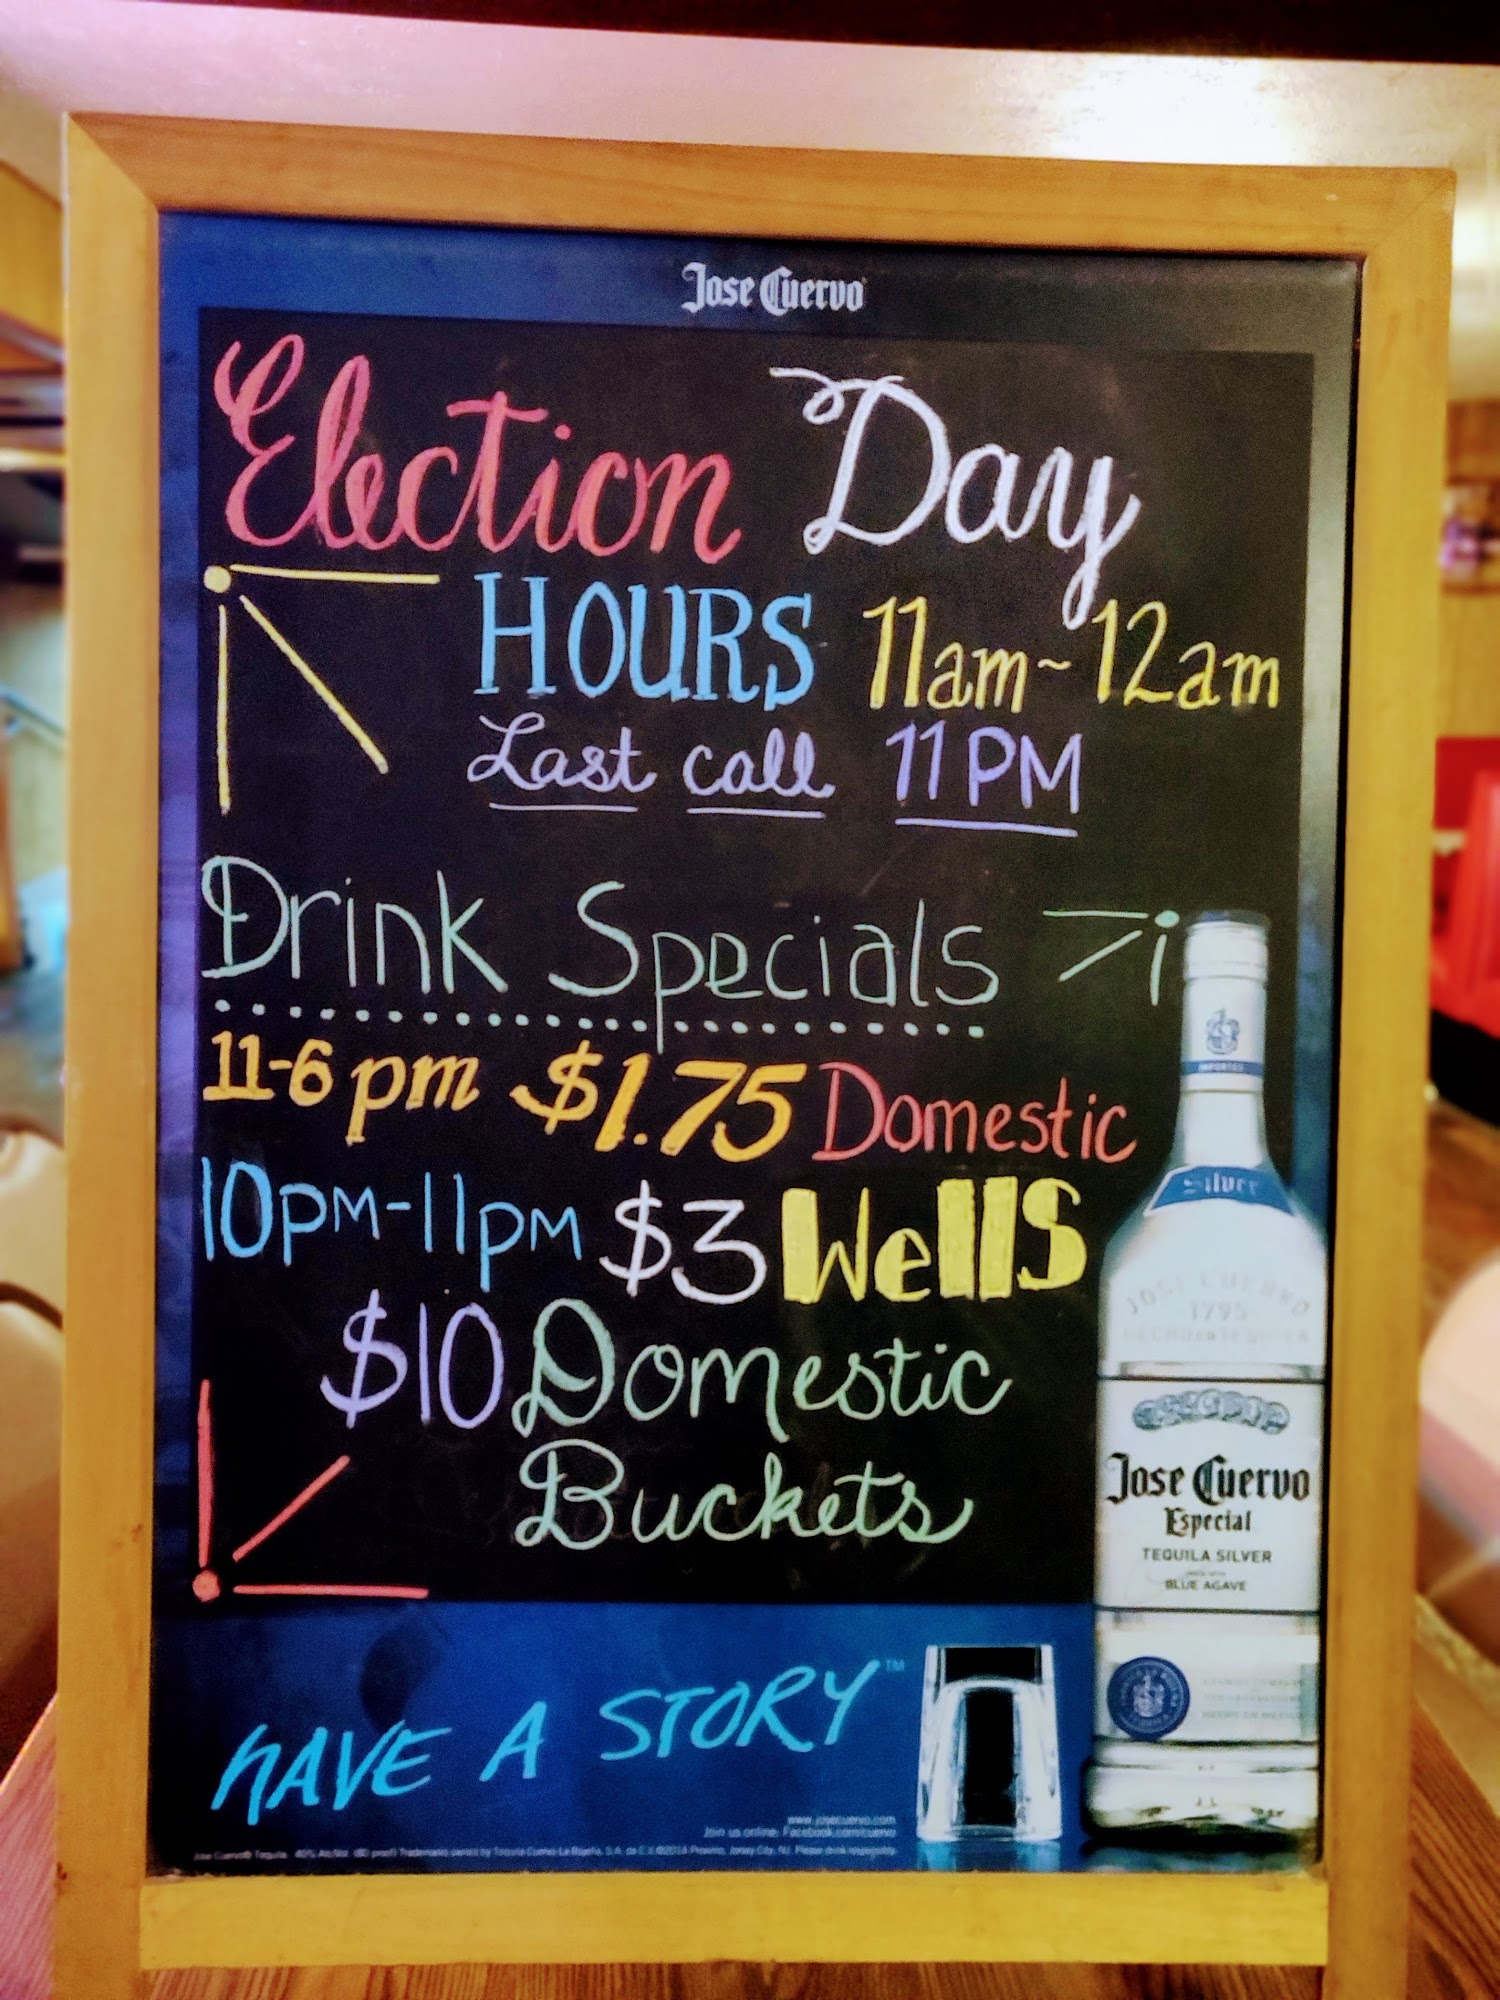 Jose Cuervo
Election Day
HOURS 11am~12am
Last call 11PM
Drink Specials
11-6pm $1.75 Domestic
10PM-11PM $3 Wells
$10 Domestic
Buckets
IMPORTED
Silver
JOSE CUERVO
1795
Jose Cuervo
Especial
TEQUILA SILVER
BLUE AGAVE
HAVE A STORY™
www.josecuervo.com
Join us online: Facebook.com/cuervo